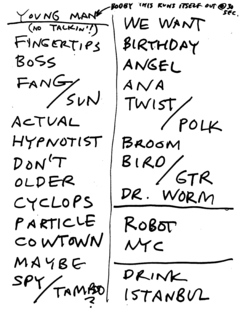 BOBBY THIS RUNS ITSELF OUT @ 30 SEC.
YOUNG MAN
(NO TALKIN'!)
FINGERTIPS
BOSS
FANG/
SUN
ACTUAL
HYPNOTIST
DON'T
OLDER
CYCLOPS
PARTICLE
COWTOWN
MAYBE
SPY/
TAMBO
?
WE WANT
BIRTHDAY
ANGEL
ANA
TWIST/
POLK
BROOM
BIRD/
GTR
DR. WORM
ROBOT
NYC
DRINK
ISTANBUL